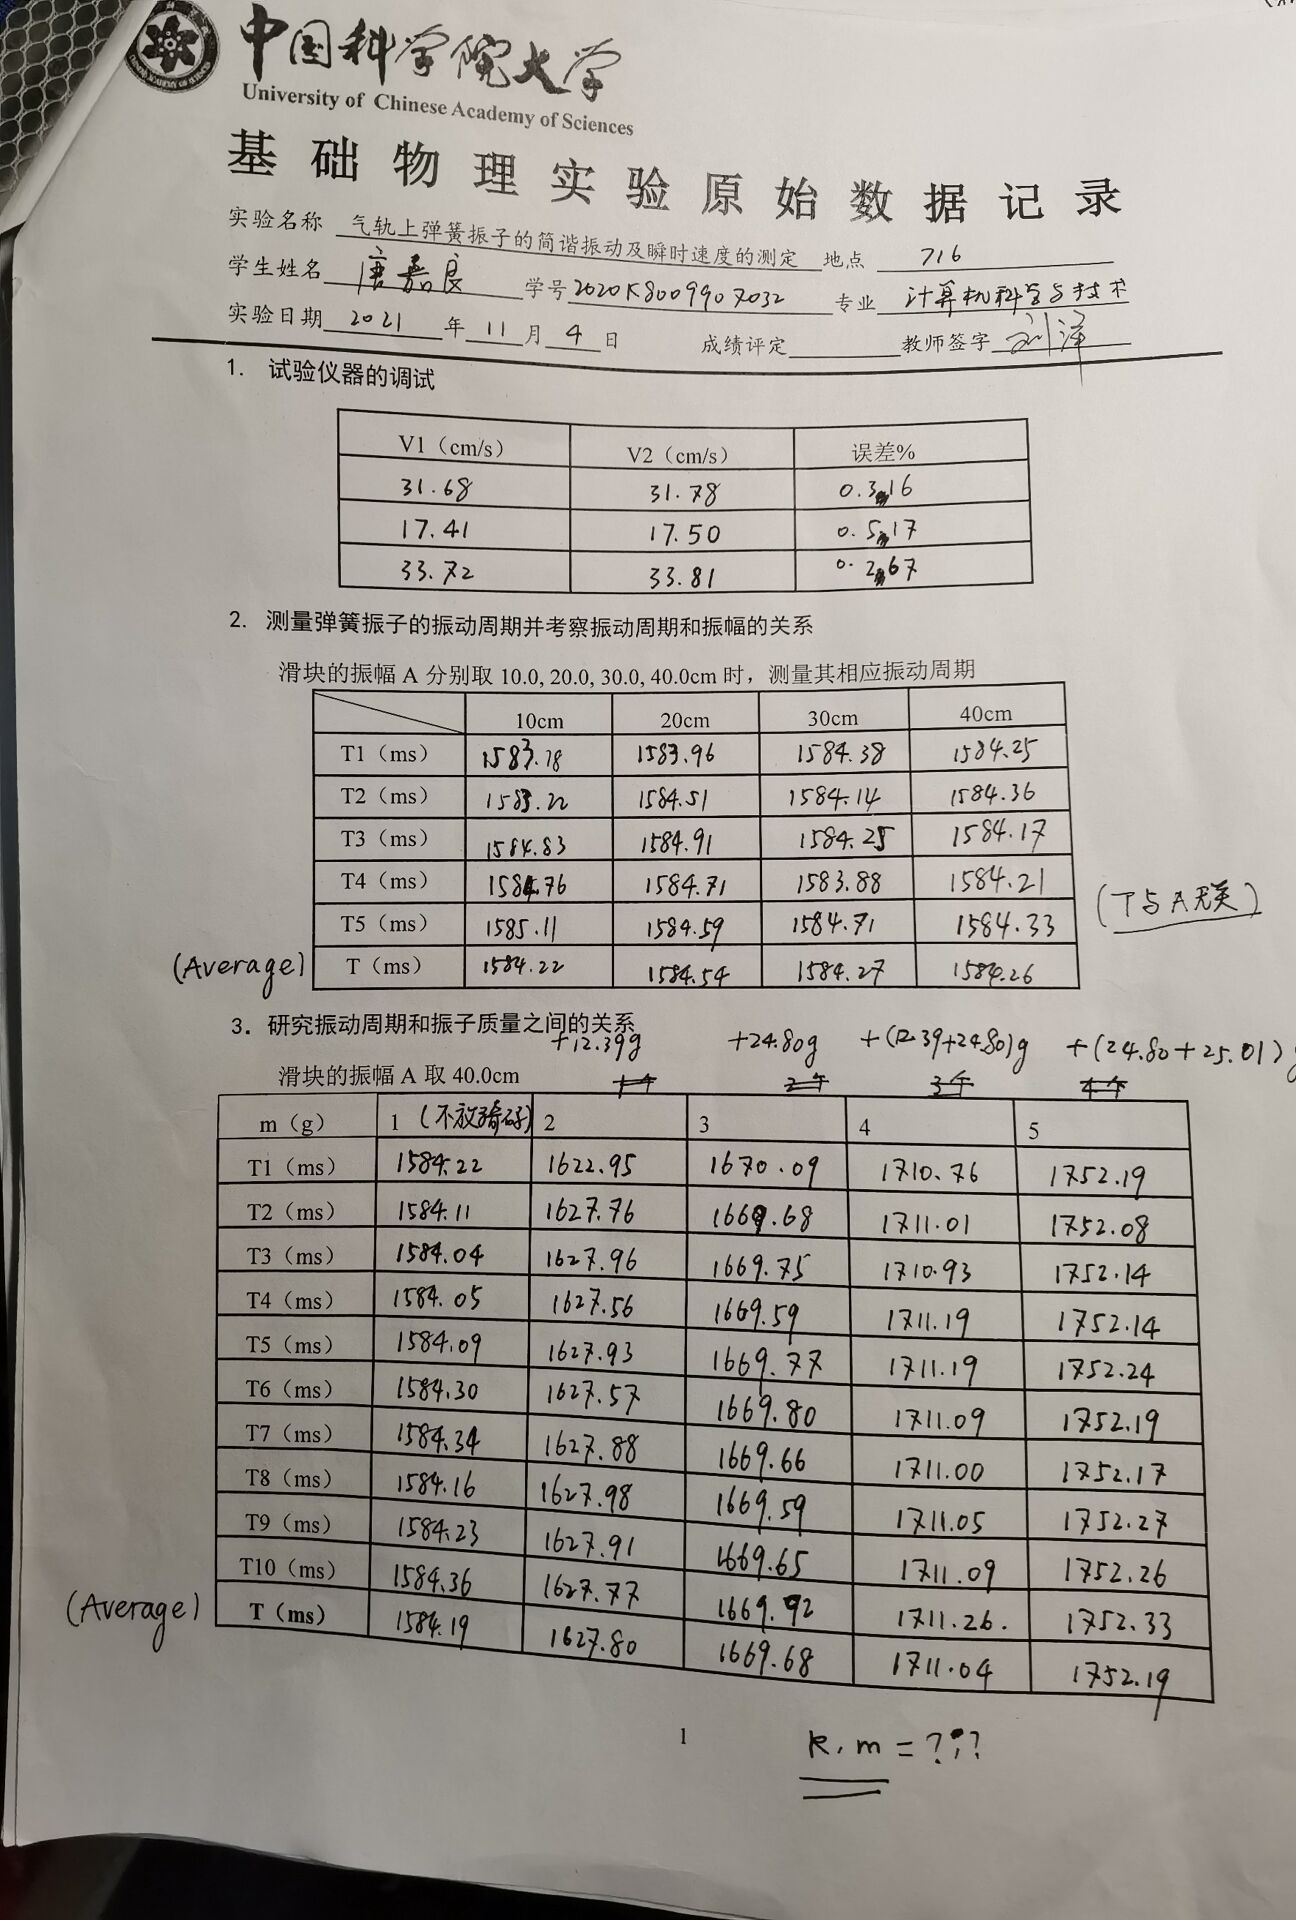 中国科学院大学
University of Chinese Academy of Sciences
基础物理实验原始数据记录
实验名称 气轨上弹簧振子的简谐振动及瞬时速度的测定 地点 716
学生姓名 唐嘉良 学号 2020K8009907032 专业 计算机科学与技术
实验日期 2021 年 11 月 4 日 成绩评定 教师签字 刘泽
1. 试验仪器的调试
V1（cm/s） V2（cm/s） 误差%
31.68 31.78 0.316
17.41 17.50 0.517
33.72 33.81 0.267
2. 测量弹簧振子的振动周期并考察振动周期和振幅的关系
滑块的振幅 A 分别取 10.0, 20.0, 30.0, 40.0cm 时，测量其相应振动周期
10cm 20cm 30cm 40cm
T1（ms） 1583.78 1583.96 1584.38 1584.25
T2（ms） 1583.22 1584.51 1584.14 1584.36
T3（ms） 1584.83 1584.91 1584.25 1584.17
T4（ms） 1584.76 1584.71 1583.88 1584.21
T5（ms） 1585.11 1584.59 1584.71 1584.33
(T与A无关)
(Average) T（ms） 1584.22 1584.54 1584.27 1584.26
3. 研究振动周期和振子质量之间的关系
+12.39g +24.80g +(12.39+24.80)g +(24.80+25.01)g
滑块的振幅 A 取 40.0cm
1个 2个 3个 4个
m（g） 1 (不放骑码) 2 3 4 5
T1（ms） 1584.22 1622.95 1670.09 1710.76 1752.19
T2（ms） 1584.11 1627.76 1669.68 1711.01 1752.08
T3（ms） 1584.04 1627.96 1669.75 1710.93 1752.14
T4（ms） 1584.05 1627.56 1669.59 1711.19 1752.14
T5（ms） 1584.09 1627.93 1669.77 1711.19 1752.24
T6（ms） 1584.30 1627.57 1669.80 1711.09 1752.19
T7（ms） 1584.34 1627.88 1669.66 1711.00 1752.17
T8（ms） 1584.16 1627.98 1669.59 1711.05 1752.27
T9（ms） 1584.23 1627.91 1669.65 1711.09 1752.26
T10（ms） 1584.36 1627.77 1669.92 1711.26. 1752.33
(Average) T（ms） 1584.19 1627.80 1669.68 1711.04 1752.19
1
k, m = ???